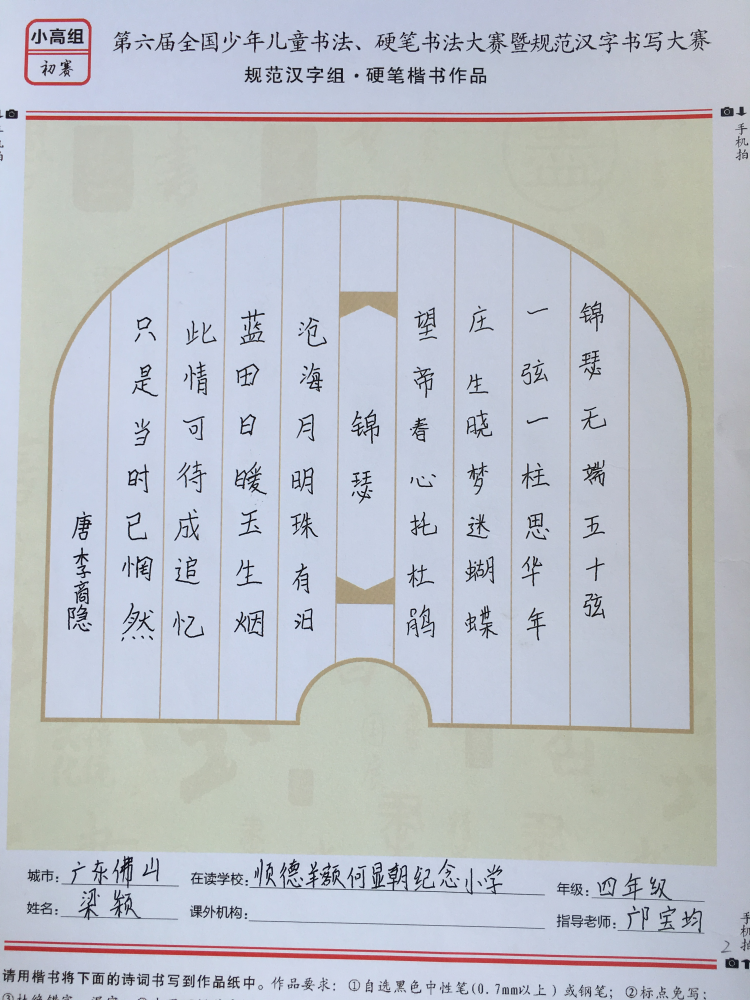 小高组
初赛
第六届全国少年儿童书法、硬笔书法大赛暨规范汉字书写大赛
规范汉字组·硬笔楷书作品
手机拍
锦瑟无端五十弦
一弦一柱思华年
庄生晓梦迷蝴蝶
望帝春心托杜鹃
锦瑟
沧海月明珠有泪
蓝田日暖玉生烟
此情可待成追忆
只是当时已惘然
唐李商隐
城市：广东佛山 在读学校：顺德羊额何显朝纪念小学 年级：四年级
姓名：梁颖 课外机构： 指导老师：邝宝均
手机拍
2
请用楷书将下面的诗词书写到作品纸中。作品要求：①自选黑色中性笔(0.7mm以上)或钢笔；②标点免写；